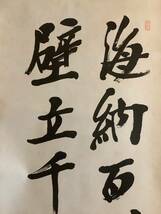 海納百
壁立千